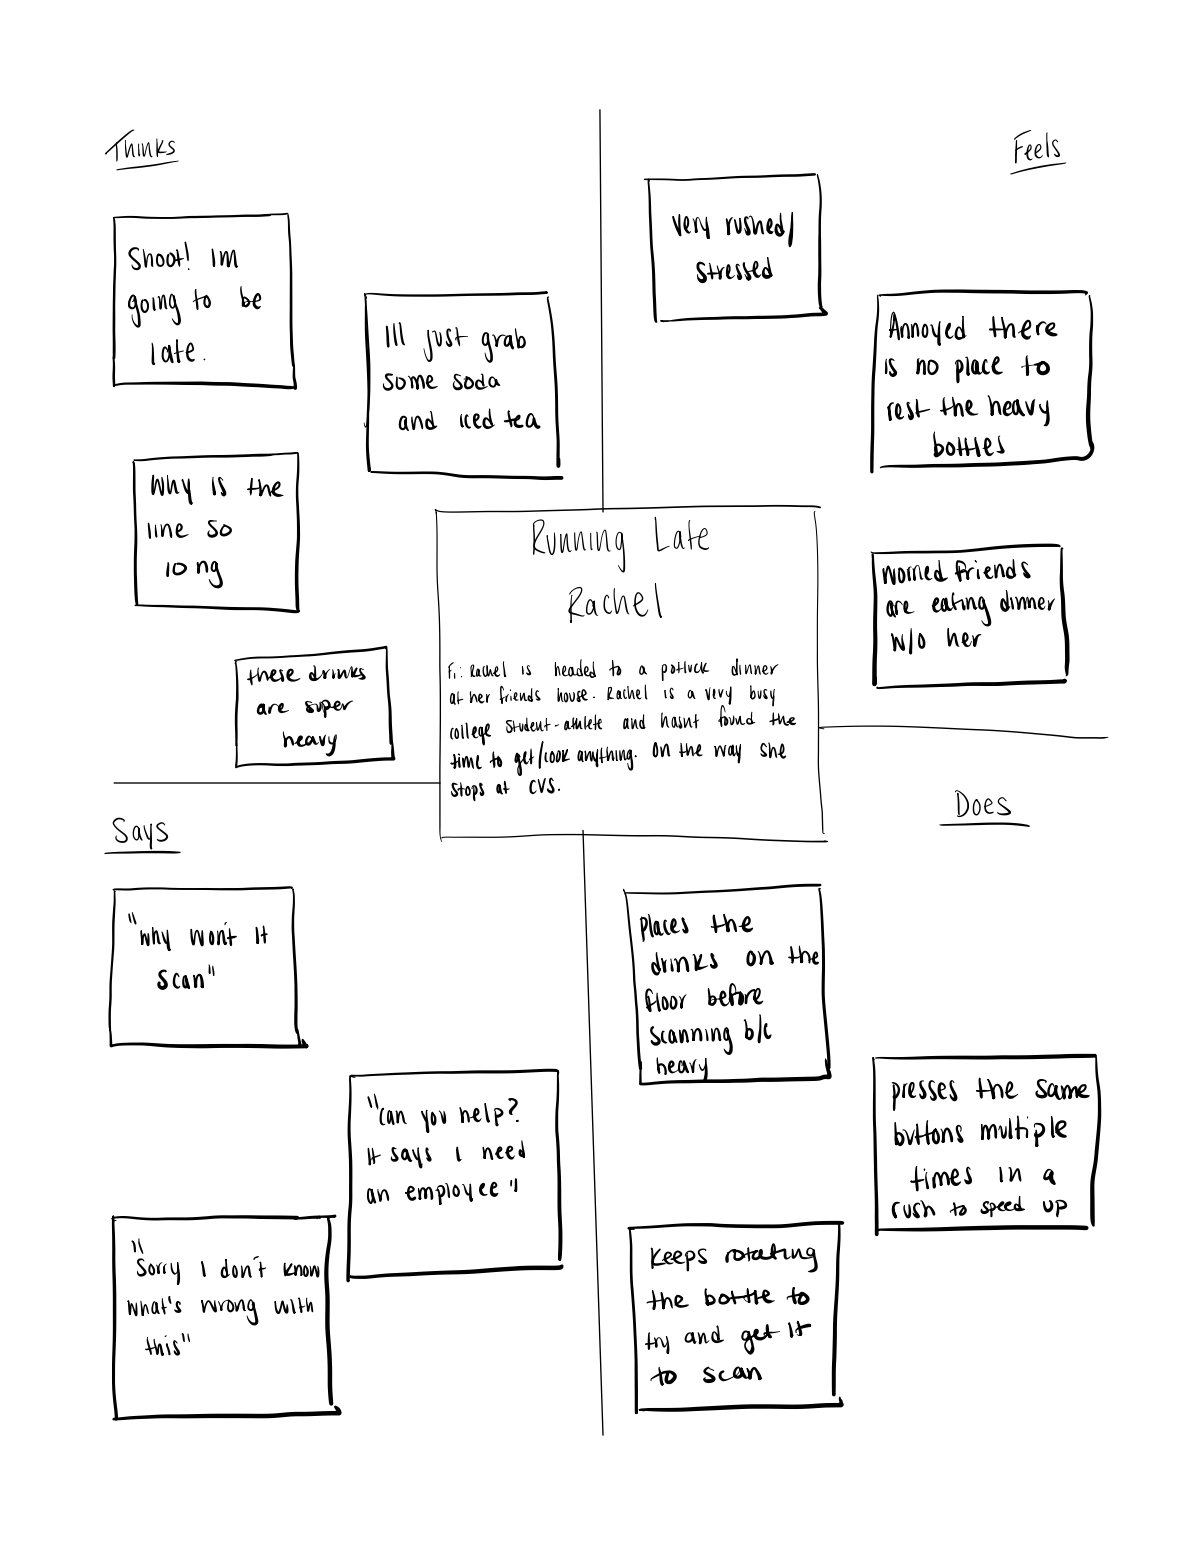 Thinks
Shoot! Im
going to be
late.
Ill just grab
some soda
and iced tea
Why is the
line so
long
these drinks
are super
heavy
Feels
very rushed/
stressed
Annoyed there
is no place to
rest the heavy
bottles
worried friends
are eating dinner
w/o her
Running Late
Rachel
Fi: Rachel is headed to a potluck dinner
at her friends house. Rachel is a very busy
college student-athlete and hasnt found the
time to get/cook anything. On the way she
stops at CVS.
Says
"why won't it
scan"
"can you help?
It says I need
an employee"
"Sorry I don't know
what's wrong with
this"
Does
Places the
drinks on the
floor before
scanning b/c
heavy
presses the same
buttons multiple
times in a
rush to speed up
Keeps rotating
the bottle to
try and get it
to scan